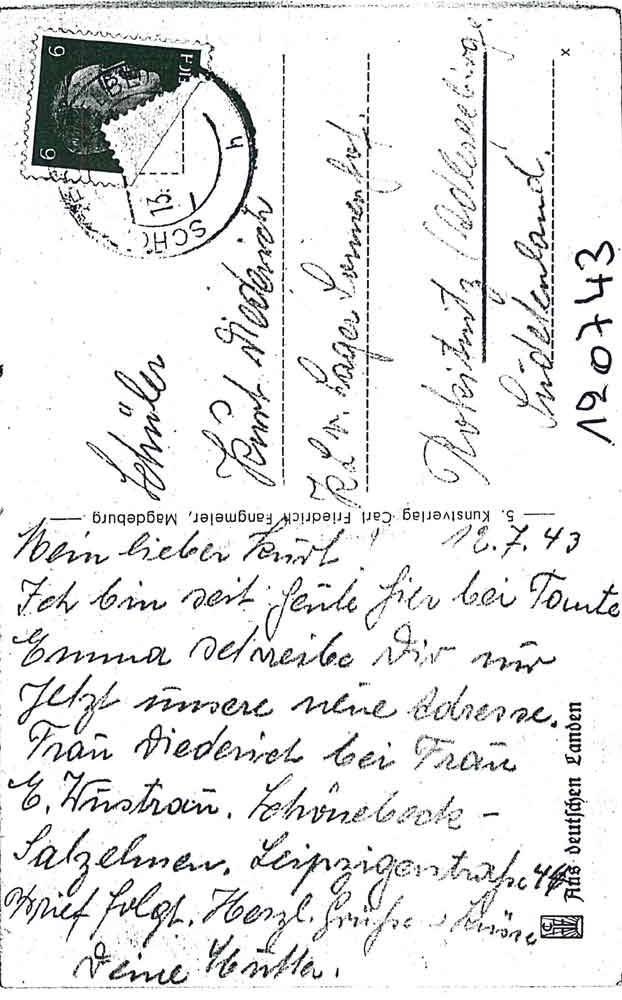 Mein lieber Kurt! 12.7.43
Ich bin seit heute hier bei Tante
Emma schreibe Dir nur
Jetzt unsere neue Adresse.
Frau Diederich bei Frau
E. Wustrau. Schönebeck-
Salzelmen. Leipzigerstraße 44
Brief folgt. Herzl. Grüße u. Küsse
Deine Mutter.
Schüler
Kurt Diederich
K L v. Lager Sonnenhof.
Rokitnitz (Adlergebirge
Sudetenland.
120743
6
6
SCHÖ
13.
h
5. Kunstverlag Carl Friedrich Fangmeier, Magdeburg
Aus deutschen Landen
x